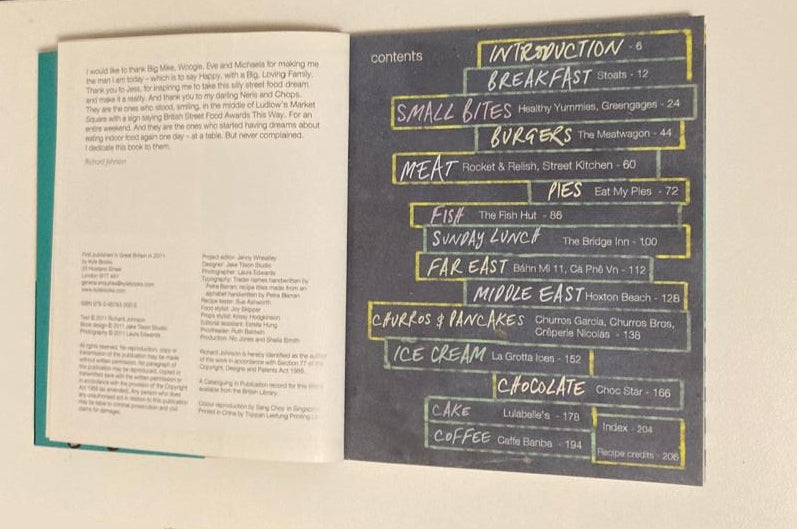 I would like to thank Big Mike, Woogie, Eve and Michaela for making me
the man I am today – which is to say Happy, with a Big, Loving Family.
Thank you to Jess, for inspiring me to take this silly street food dream
and make it a reality. And thank you to my darling Neris and Chops.
They are the ones who stood, smiling, in the middle of Ludlow's Market
Square with a sign saying British Street Food Awards This Way. For an
entire weekend. And they are the ones who started having dreams about
eating indoor food again one day – at a table. But never complained.
I dedicate this book to them.
Richard Johnson
First published in Great Britain in 2011
by Kyle Books
general.enquiries@kylebooks.com
www.kylebooks.com
Text © 2011 Richard Johnson
Book design © 2011 Jake Tilson Studio
Photography © 2011 Laura Edwards
All rights reserved. No reproduction, copy or
transmission of this publication may be made
without written permission. No paragraph of
this publication may be reproduced, copied or
transmitted save with the written permission or
in accordance with the provision of the Copyright
Act 1956 (as amended). Any person who does
any unauthorised act in relation to this publication
may be liable to criminal prosecution and civil
claims for damages.
Project editor: Jenny Wheatley
Designer: Jake Tilson Studio
Photographer: Laura Edwards
Typography: Trader names handwritten by
recipe titles made from an
alphabet handwritten by
Recipe tester: Sue Ashworth
Food stylist: Joy Skipper
Props stylist:
Editorial assistant: Estella Hung
Proofreader: Ruth Baldwin
Production: Nic Jones and Sheila Smith
Richard Johnson is hereby identified as the author
of this work in accordance with Section 77 of the
Copyright, Designs and Patents Act 1988.
A Cataloguing in Publication record for this
available from the British Library.
Colour reproduction by Sang Choy in
Printed in China by Toppan Leefung Printing
contents
INTRODUCTION - 6
BREAKFAST Stoats - 12
SMALL BITES Healthy Yummies, Greengages - 24
BURGERS The Meatwagon - 44
MEAT Rocket & Relish, Street Kitchen - 60
PIES Eat My Pies - 72
FISH The Fish Hut - 86
SUNDAY LUNCH The Bridge Inn - 100
FAR EAST Bánh Mì 11, Cà Phê Vn - 112
MIDDLE EAST Hoxton Beach - 128
CHURROS & PANCAKES Churros Garcia, Churros Bros,
Crêperie Nicolas - 138
ICE CREAM La Grotta Ices - 152
CHOCOLATE Choc Star - 166
CAKE Lulabelle's - 178
COFFEE Caffe Banba - 194
Index - 204
Recipe credits - 206